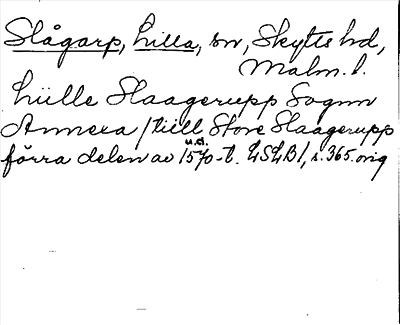 Slågarp, Lilla, sn, Skytts hd,
Malm. l.
Lülle Slaagerupp Sognn
Annexa /till Store Slaagerupp
u.d.
förra delen av 1570-t. LSLB1, s. 365. orig